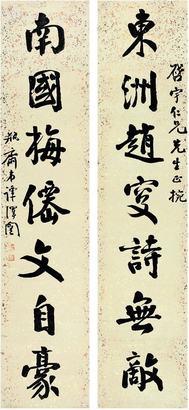 啓宇仁兄先生正捥
東洲趙叟詩無敵
南國梅僊文自豪
瓶齋弟譚澤闓